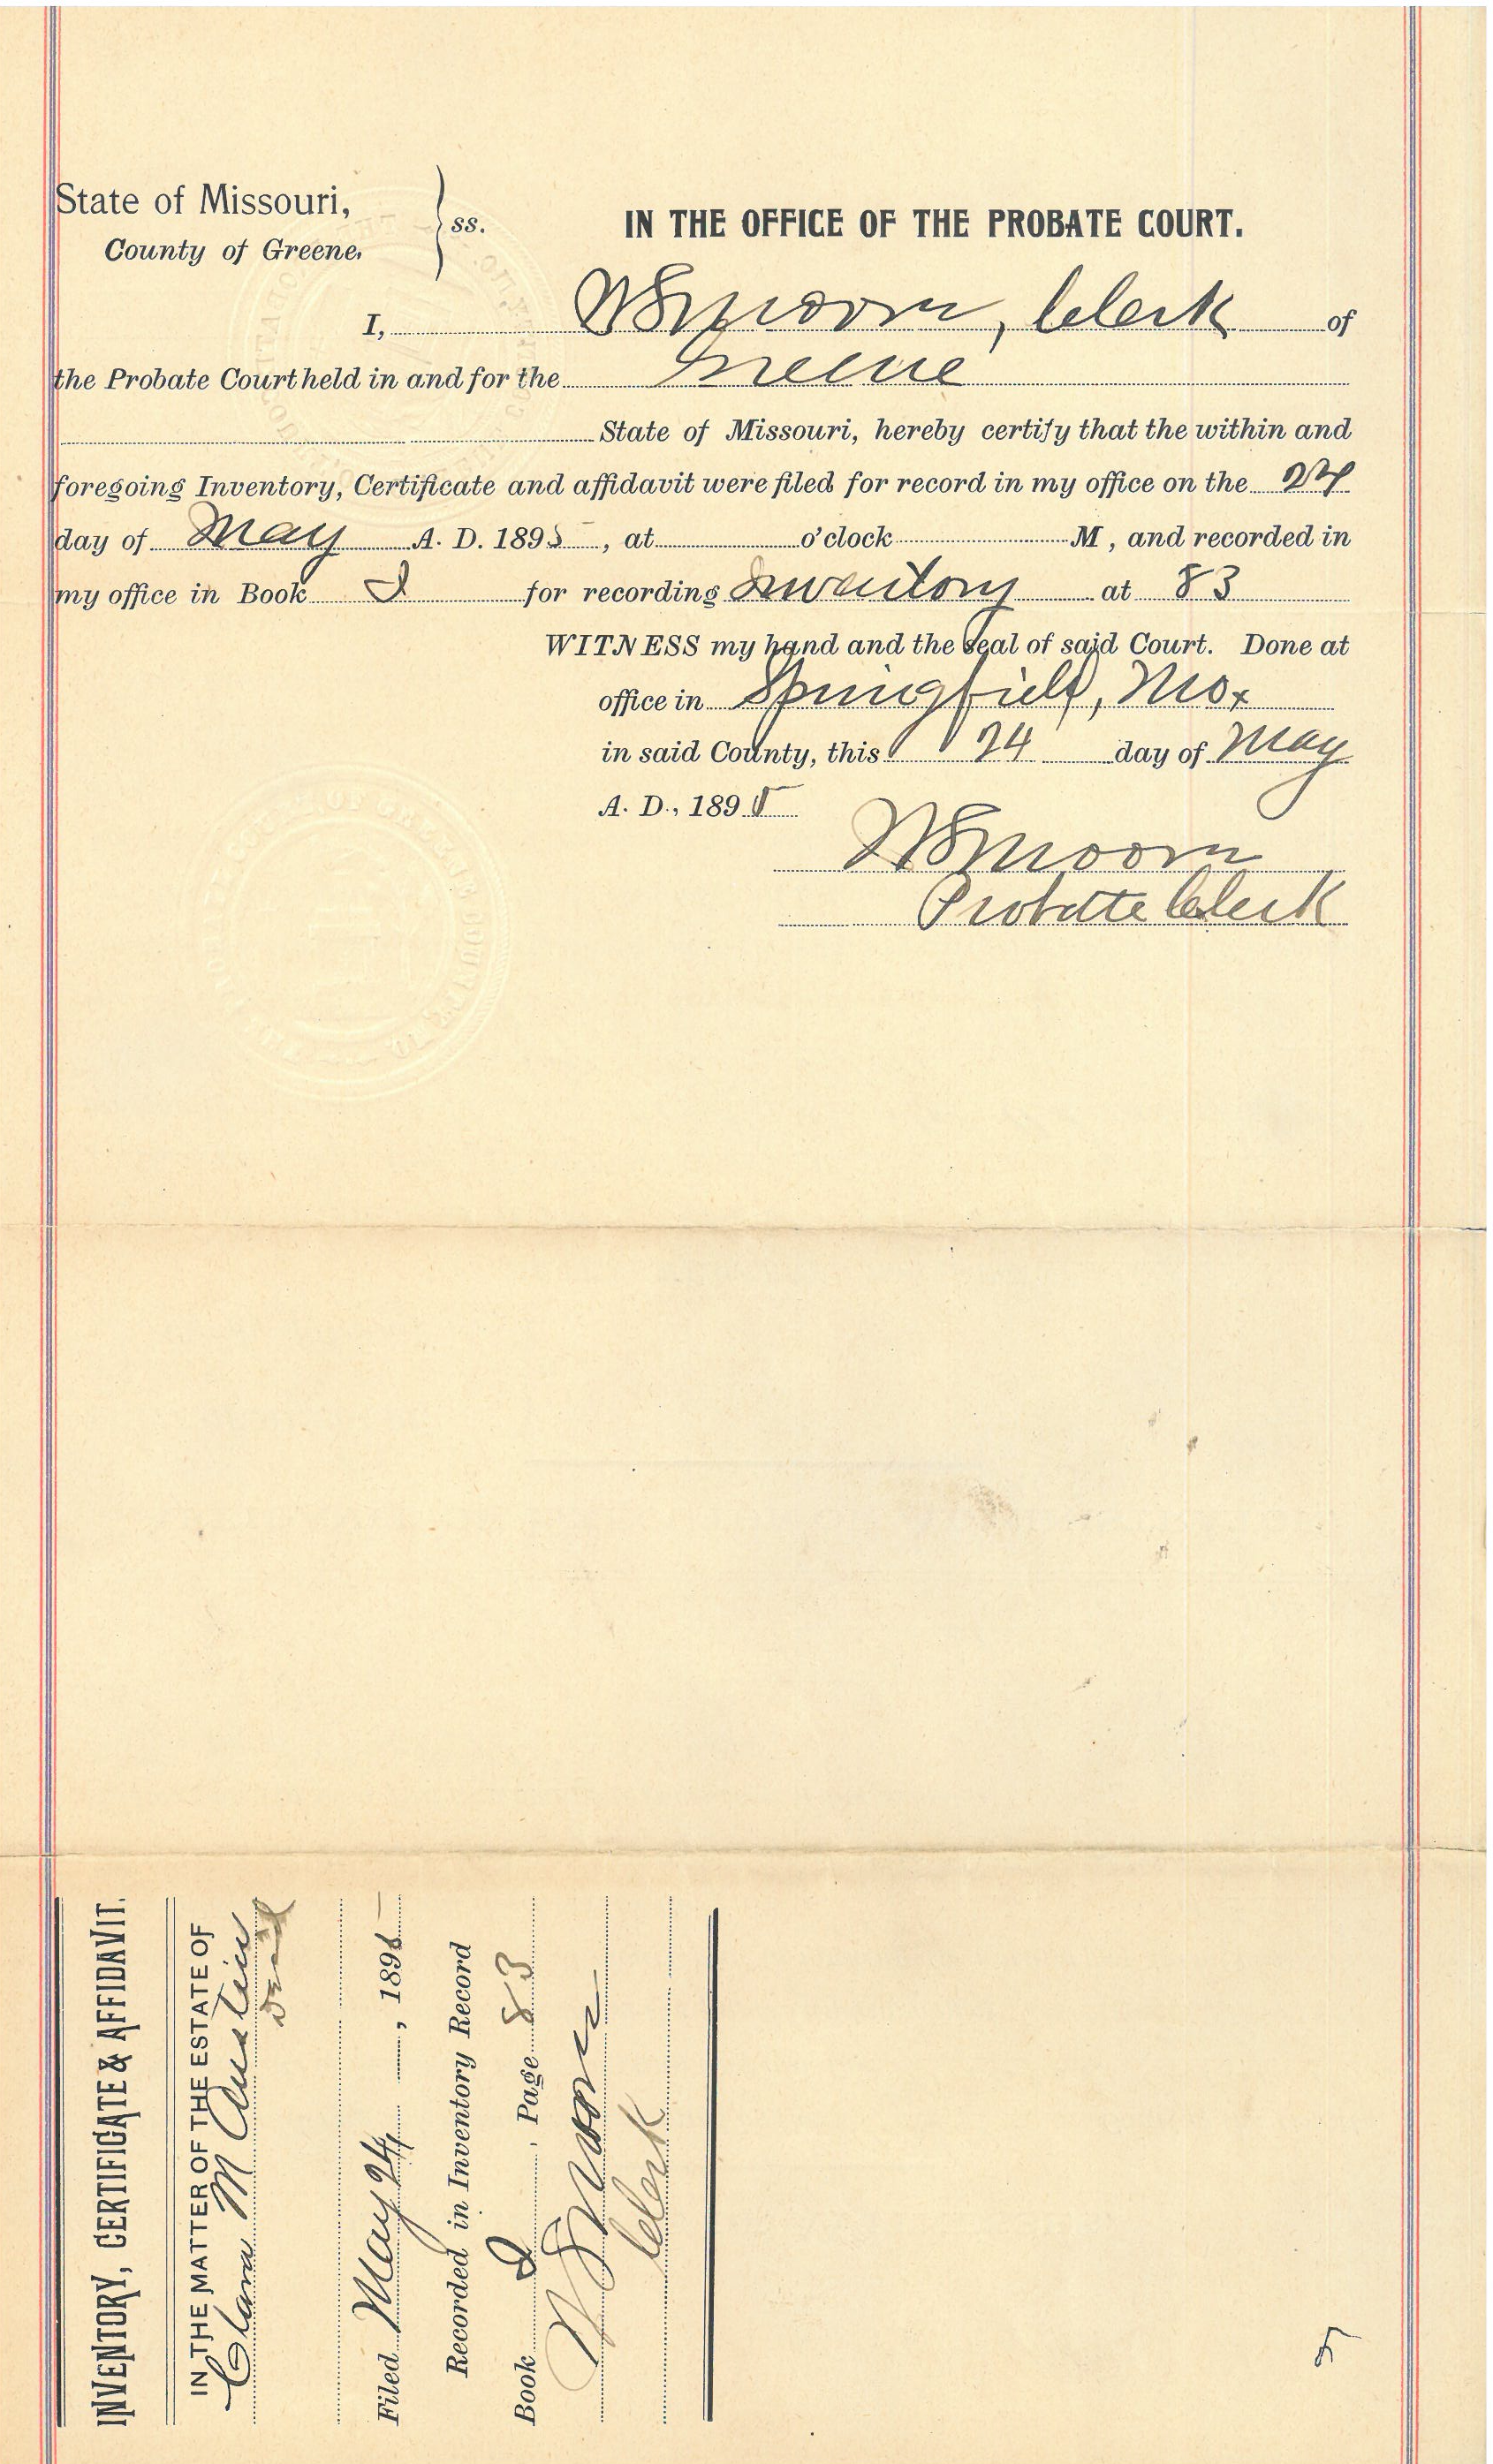 State of Missouri,
County of Greene.
ss.
IN THE OFFICE OF THE PROBATE COURT.
I, Clerk of
the Probate Court held in and for the Greene
State of Missouri, hereby certify that the within and
foregoing Inventory, Certificate and affidavit were filed for record in my office on the 24
day of May A. D. 1895, at o'clock M, and recorded in
my office in Book for recording Inventory at 83
WITNESS my hand and the Seal of said Court. Done at
office in Springfield, Mo.
in said County, this 24 day of May
A. D., 1895
Probate Clerk
INVENTORY, CERTIFICATE & AFFIDAVIT.
IN THE MATTER OF THE ESTATE OF
Clara M Austin
Filed May 24, 1895
Recorded in Inventory Record
Book, Page 83
Clerk
5